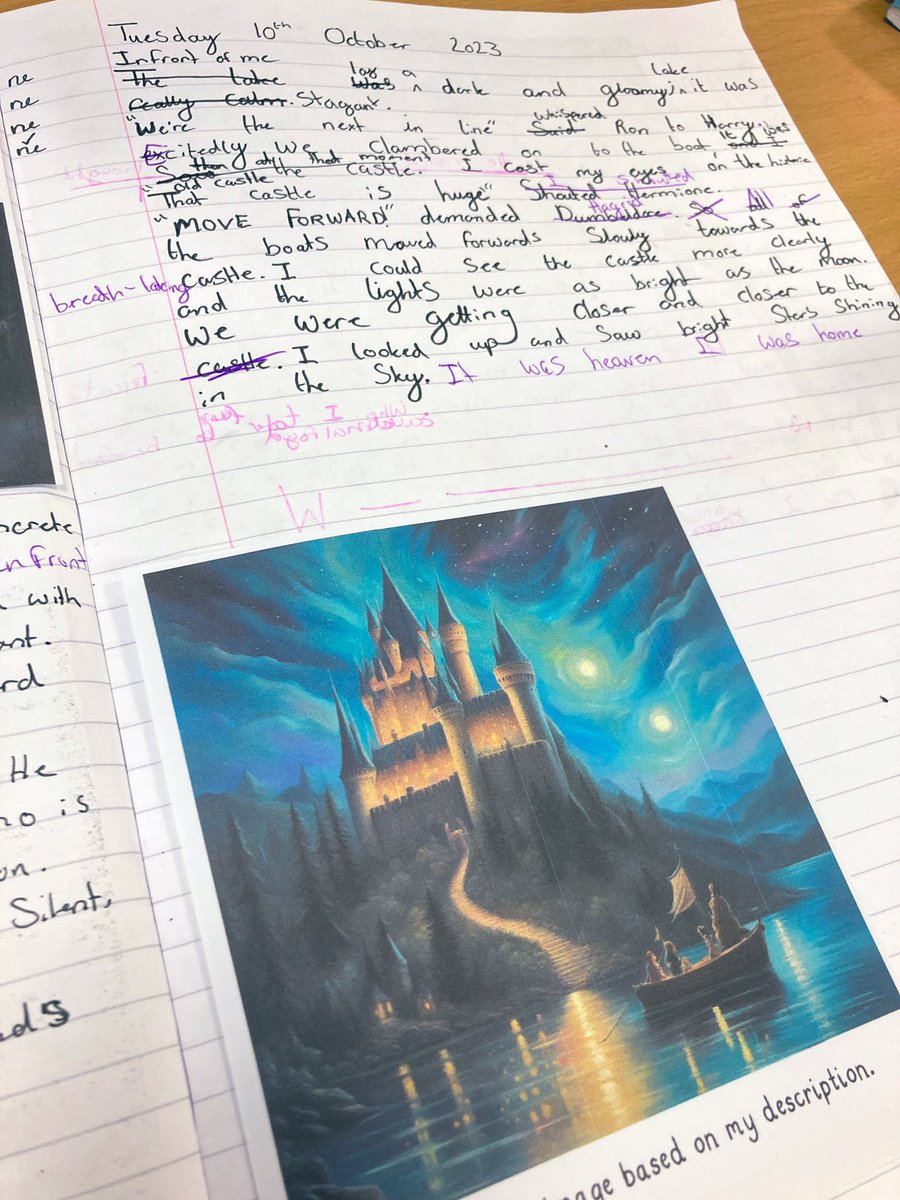 Tuesday 10th October 2023
ne
ne
ne
ne
Infront of me
The lake was lay a dark and gloomy lake, it was
really calm. Stagant.
"We're the next in line" Said whispered Ron to Harry.
Excitedly we clambered on to the boat, it was
then at that moment I cast my eyes on the historic
old castle.
"That castle is huge" Shouted Hermione.
"MOVE FORWARD!" demanded Dumbeldore. Hagrid All of
the boats moved forwards Slowly towards the
breath-taking castle. I could see the castle more clearly
and the lights were as bright as the moon.
We were getting closer and closer to the
castle. I looked up and Saw bright Stars Shining
in the Sky. It was heaven I was home
ncrete
nfront
with
ant.
rd
He
no is
on.
Silent,
ads
age based on my description.